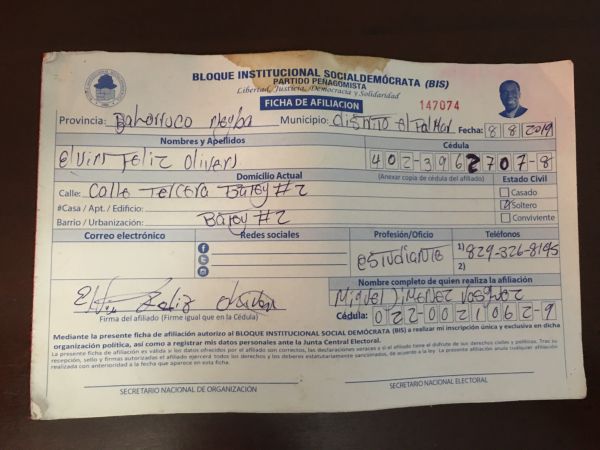 BLOQUE INSTITUCIONAL SOCIALDEMÓCRATA (BIS)
PARTIDO PEÑAGOMISTA
Libertad, Justicia, Democracia y Solidaridad
FICHA DE AFILIACION
147074
Provincia: Bahorruco Neyba Municipio: Distrito el Palmar Fecha: 8 8 2019
Nombres y Apellidos Cédula
Elvin Feliz Olivero 402-3962707-8
Domicilio Actual (Anexar copia de cédula del afiliado) Estado Civil
Calle: Calle Tercera Batey #2 Casado
#Casa / Apt. / Edificio: Soltero
Barrio / Urbanización: Batey #2 Conviviente
Correo electrónico Redes sociales Profesión/Oficio Teléfonos
estudiante 1) 829-326-8195
2)
Nombre completo de quien realiza la afiliación
Miguel Jimenez Vasquez
Firma del afiliado (Firme igual que en la Cédula) Cédula: 022-0021062-9
Mediante la presente ficha de afiliación autorizo al BLOQUE INSTITUCIONAL SOCIAL DEMÓCRATA (BIS) a realizar mi inscripción única y exclusiva en dicha
organización política, así como a registrar mis datos personales ante la Junta Central Electoral.
La presente ficha de afiliación es válida si los datos ofrecidos por el afiliado son correctos, las declaraciones veraces y si el afiliado tiene el disfrute de sus derechos civiles y políticos. Tras su
recepción, sello y firmas autorizadas el afiliado ejercerá todos los derechos y las deberes estatutariamente sancionados, de acuerdo a la ley. La presente afiliación anula cualquier afiliación
realizada con anterioridad a la fecha que aparece en esta ficha.
SECRETARIO NACIONAL DE ORGANIZACIÓN SECRETARIO NACIONAL ELECTORAL